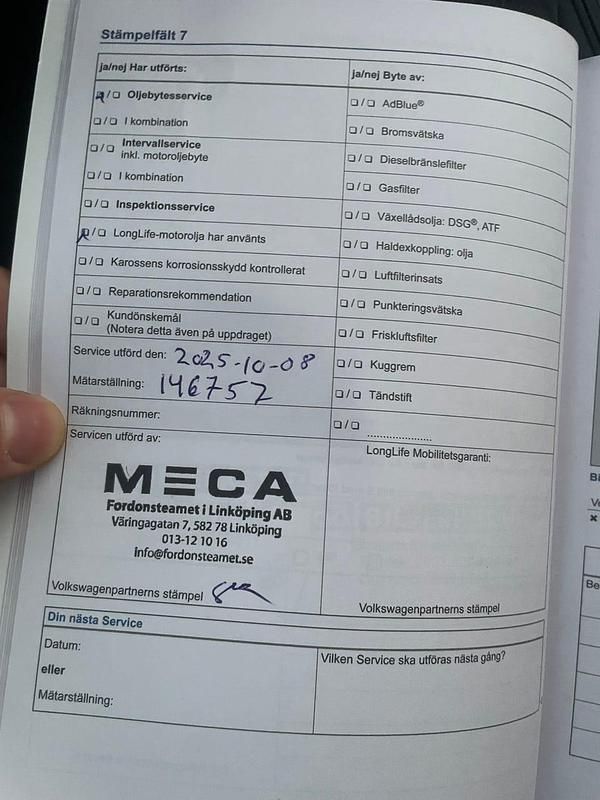 Stämpelfält 7
ja/nej Har utförts:
☑/☐ Oljebytesservice
☐/☐ I kombination
☐/☐ Intervallservice
inkl. motoroljebyte
☐/☐ I kombination
☐/☐ Inspektionsservice
☑/☐ LongLife-motorolja har använts
☐/☐ Karossens korrosionsskydd kontrollerat
☐/☐ Reparationsrekommendation
☐/☐ Kundönskemål
(Notera detta även på uppdraget)
Service utförd den: 2025-10-08
Mätarställning: 146752
Räkningsnummer:
Servicen utförd av:
MECA
Fordonsteamet i Linköping AB
Väringagatan 7, 582 78 Linköping
013-12 10 16
info@fordonsteamet.se
Volkswagenpartnerns stämpel
ja/nej Byte av:
☐/☐ AdBlue®
☐/☐ Bromsvätska
☐/☐ Dieselbränslefilter
☐/☐ Gasfilter
☐/☐ Växellådsolja: DSG®, ATF
☐/☐ Haldexkoppling: olja
☐/☐ Luftfilterinsats
☐/☐ Punkteringsvätska
☐/☐ Friskluftsfilter
☐/☐ Kuggrem
☐/☐ Tändstift
☐/☐ ......................
LongLife Mobilitetsgaranti:
Volkswagenpartnerns stämpel
Din nästa Service
Datum:
eller
Mätarställning:
Vilken Service ska utföras nästa gång?